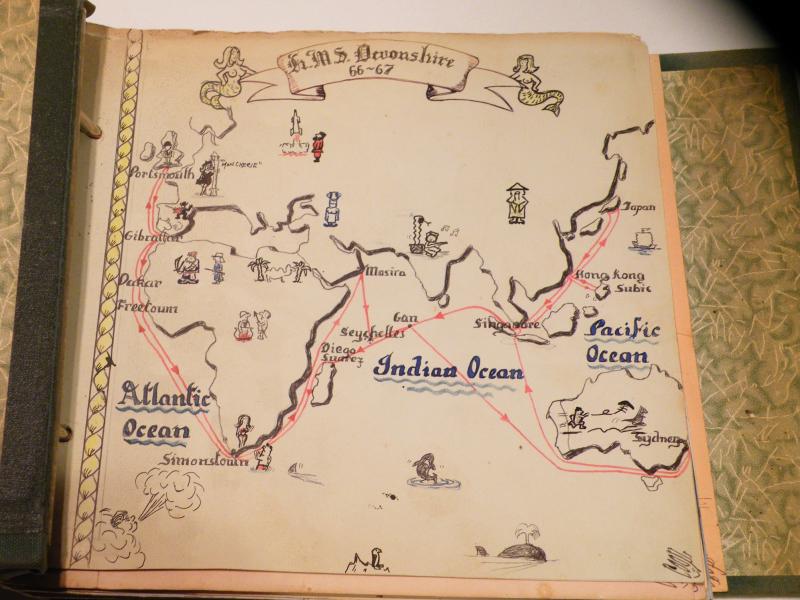 H.M.S. Devonshire
66-67
Portsmouth
"MON CHERIE"
Gibraltar
Dakar
Freetown
Simonstown
Atlantic
Ocean
Masira
Gan
Seychelles
Diego
Suarez
Indian Ocean
Singapore
Japan
Hong Kong
Subic
Pacific
Ocean
Sydney